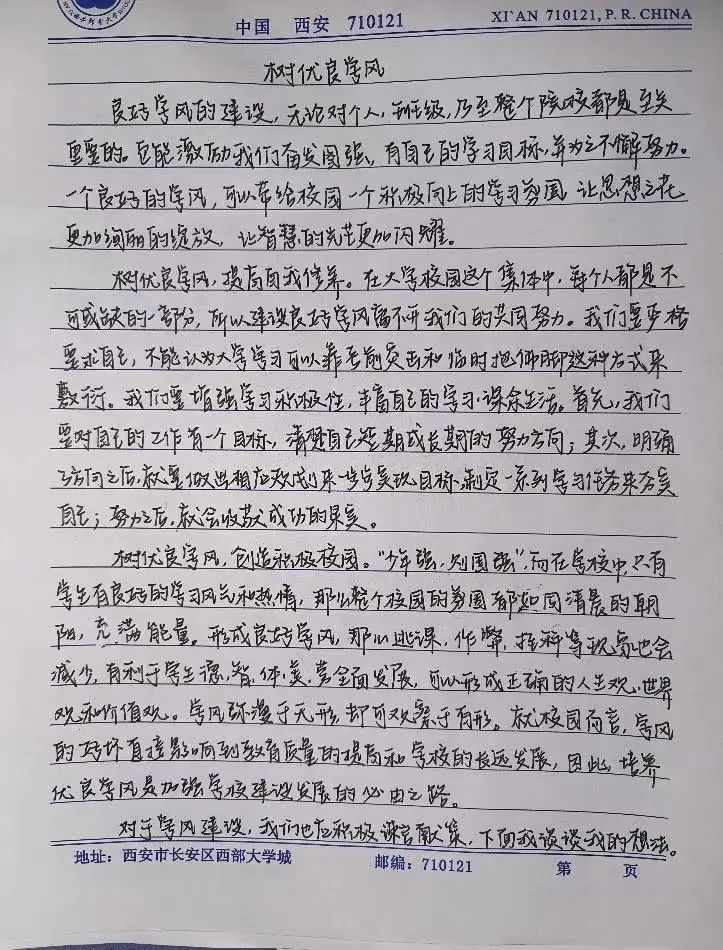 中国 西安 710121
XI`AN 710121, P. R. CHINA
树优良学风
良好学风的建设，无论对个人，班级，乃至整个院校都是至关
重要的。它能激励我们奋发图强，有自己的学习目标，并为之不懈努力。
一个良好的学风，可以带给校园一个积极向上的学习氛围，让思想之花
更加绚丽的绽放，让智慧的光芒更加闪耀。
树优良学风，提高自我修养。在大学校园这个集体中，每个人都是不
可或缺的一部分，所以建设良好学风离不开我们的共同努力。我们要严格
要求自己，不能认为大学学习可以靠考前突击和临时抱佛脚这种方式来
敷衍。我们要增强学习积极性，丰富自己的学习课余生活。首先，我们
要对自己的工作有一个目标，清楚自己短期或长期的努力方向；其次，明确
了方向之后，就要做出相应规划来一步步实现目标，制定一系列学习任务来夯实
自己；努力之后，就会收获成功的果实。
树优良学风，创造积极校园。“少年强，则国强”，而在学校中，只有
学生有良好的学习风气和热情，那么整个校园的氛围都如同清晨的朝
阳，充满能量。形成良好学风，那么逃课，作弊，挂科等现象也会
减少，有利于学生德，智，体，美，劳全面发展，可以形成正确的人生观，世界
观和价值观。学风弥漫于无形，却可观察于有形。就校园而言，学风
的好坏直接影响到教育质量的提高和学校的长远发展，因此，培养
优良学风是加强学校建设发展的必由之路。
对于学风建设，我们也应积极谏言献策，下面我谈谈我的想法。
地址：西安市长安区西部大学城 邮编：710121 第 页